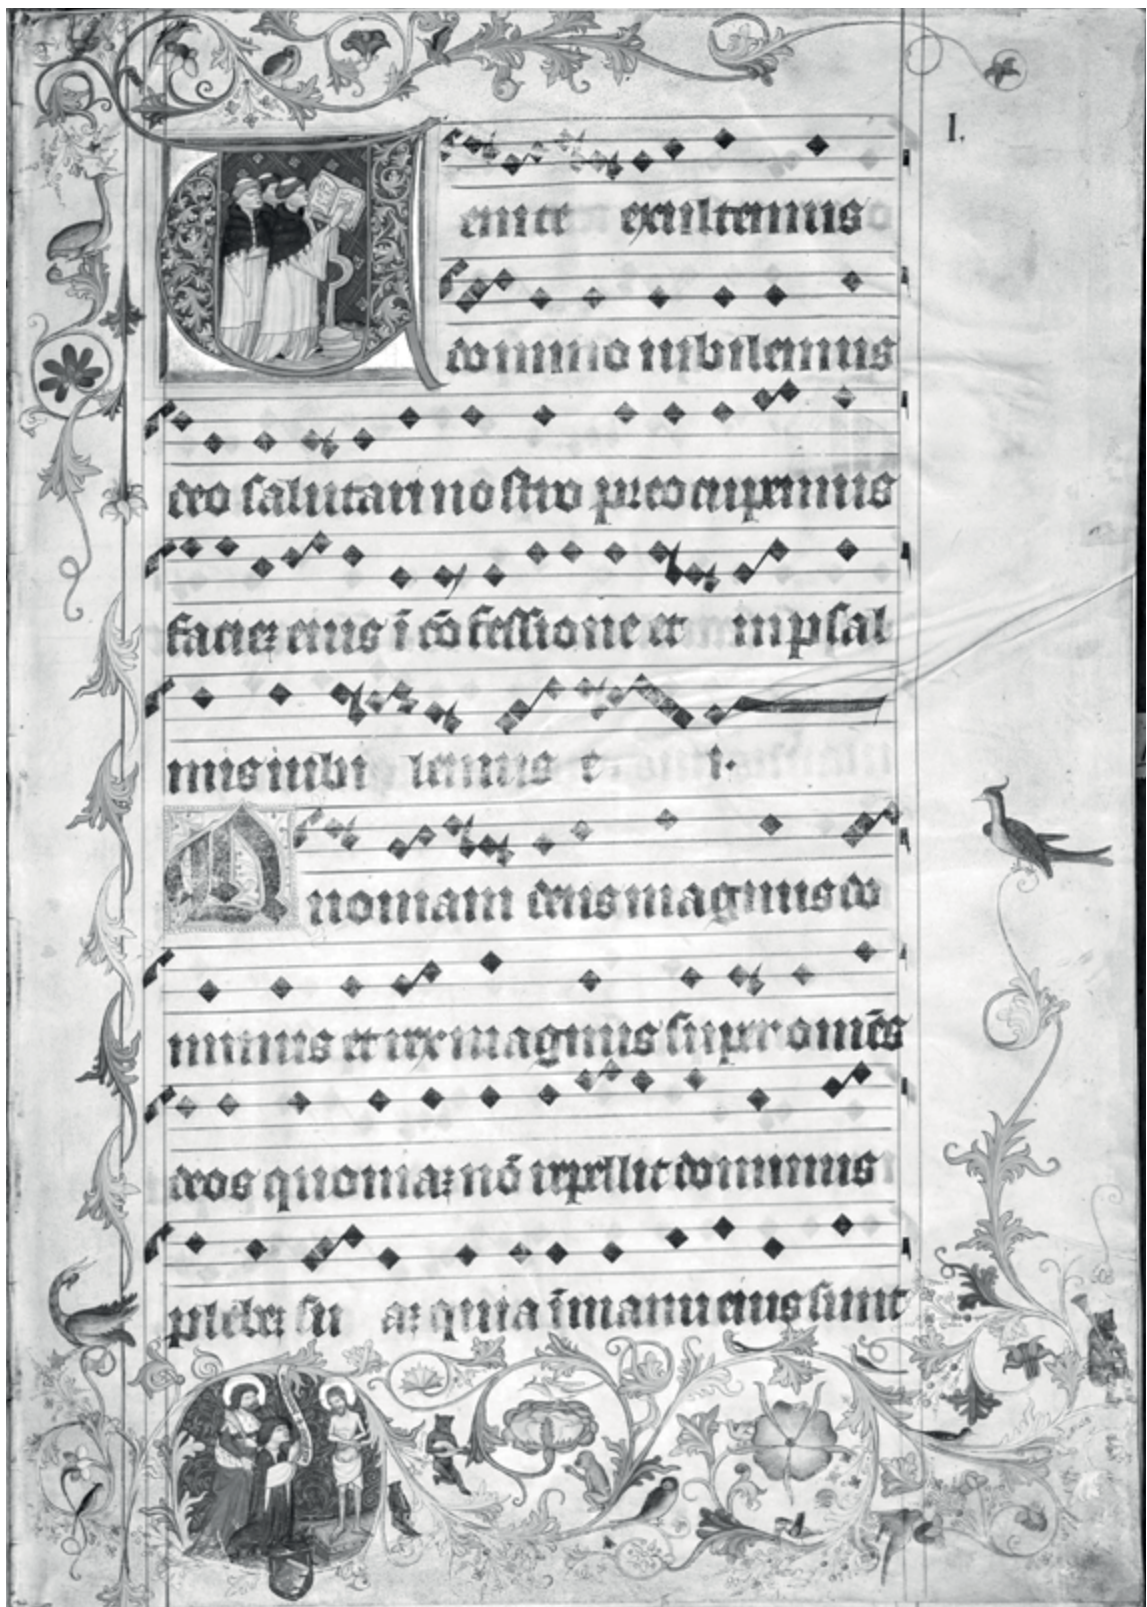 I.
Uenite exultemus
domino iubilemus
deo salutari nostro preocupemus
facieꝫ eius ī cōfessione et in psal
mis iubilemus e i.
Quoniam deus magnus do
minus et rex magnus super omēs
deos quoniaꝫ nō repellit dominus
plebeꝫ suaꝫ quia ī manu eius sunt